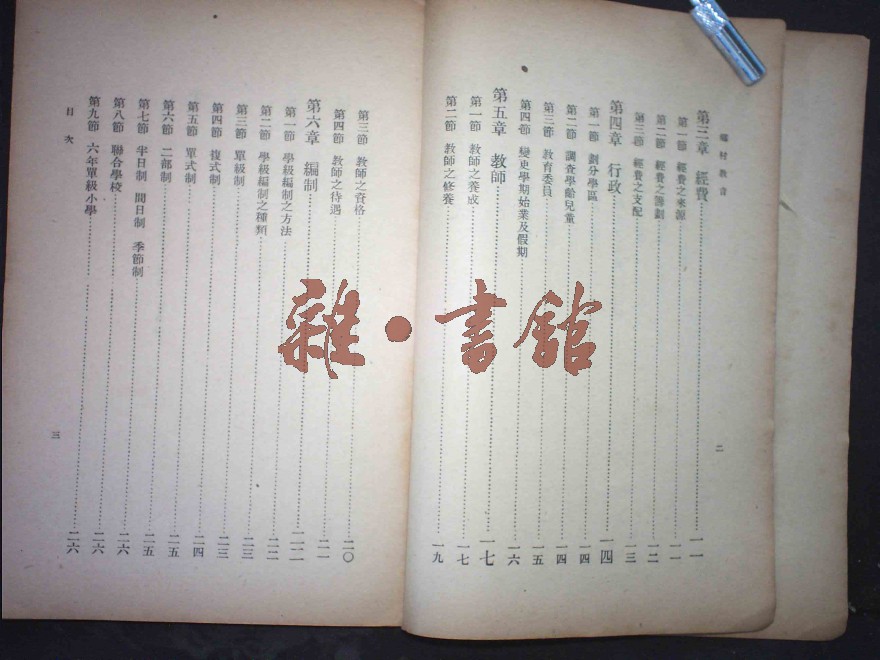 鄉村教育
第三章　經費……一一
第一節　經費之來源……一一
第二節　經費之籌劃……一二
第三節　經費之支配……一三
第四章　行政……一四
第一節　劃分學區……一四
第二節　調查學齡兒童……一四
第三節　教育委員……一五
第四節　變更學期始業及假期……一六
第五章　教師……一七
第一節　教師之養成……一七
第二節　教師之修養……一九
二
第三節　教師之資格……二〇
第四節　教師之待遇……二一
第六章　編制……二二
第一節　學級編制之方法……二二
第二節　學級編制之種類……二三
第三節　單級制……二三
第四節　複式制……二三
第五節　單式制……二四
第六節　二部制……二五
第七節　半日制　間日制　季節制……二五
第八節　聯合學校……二六
第九節　六年單級小學……二六
目次
三
雜•書館